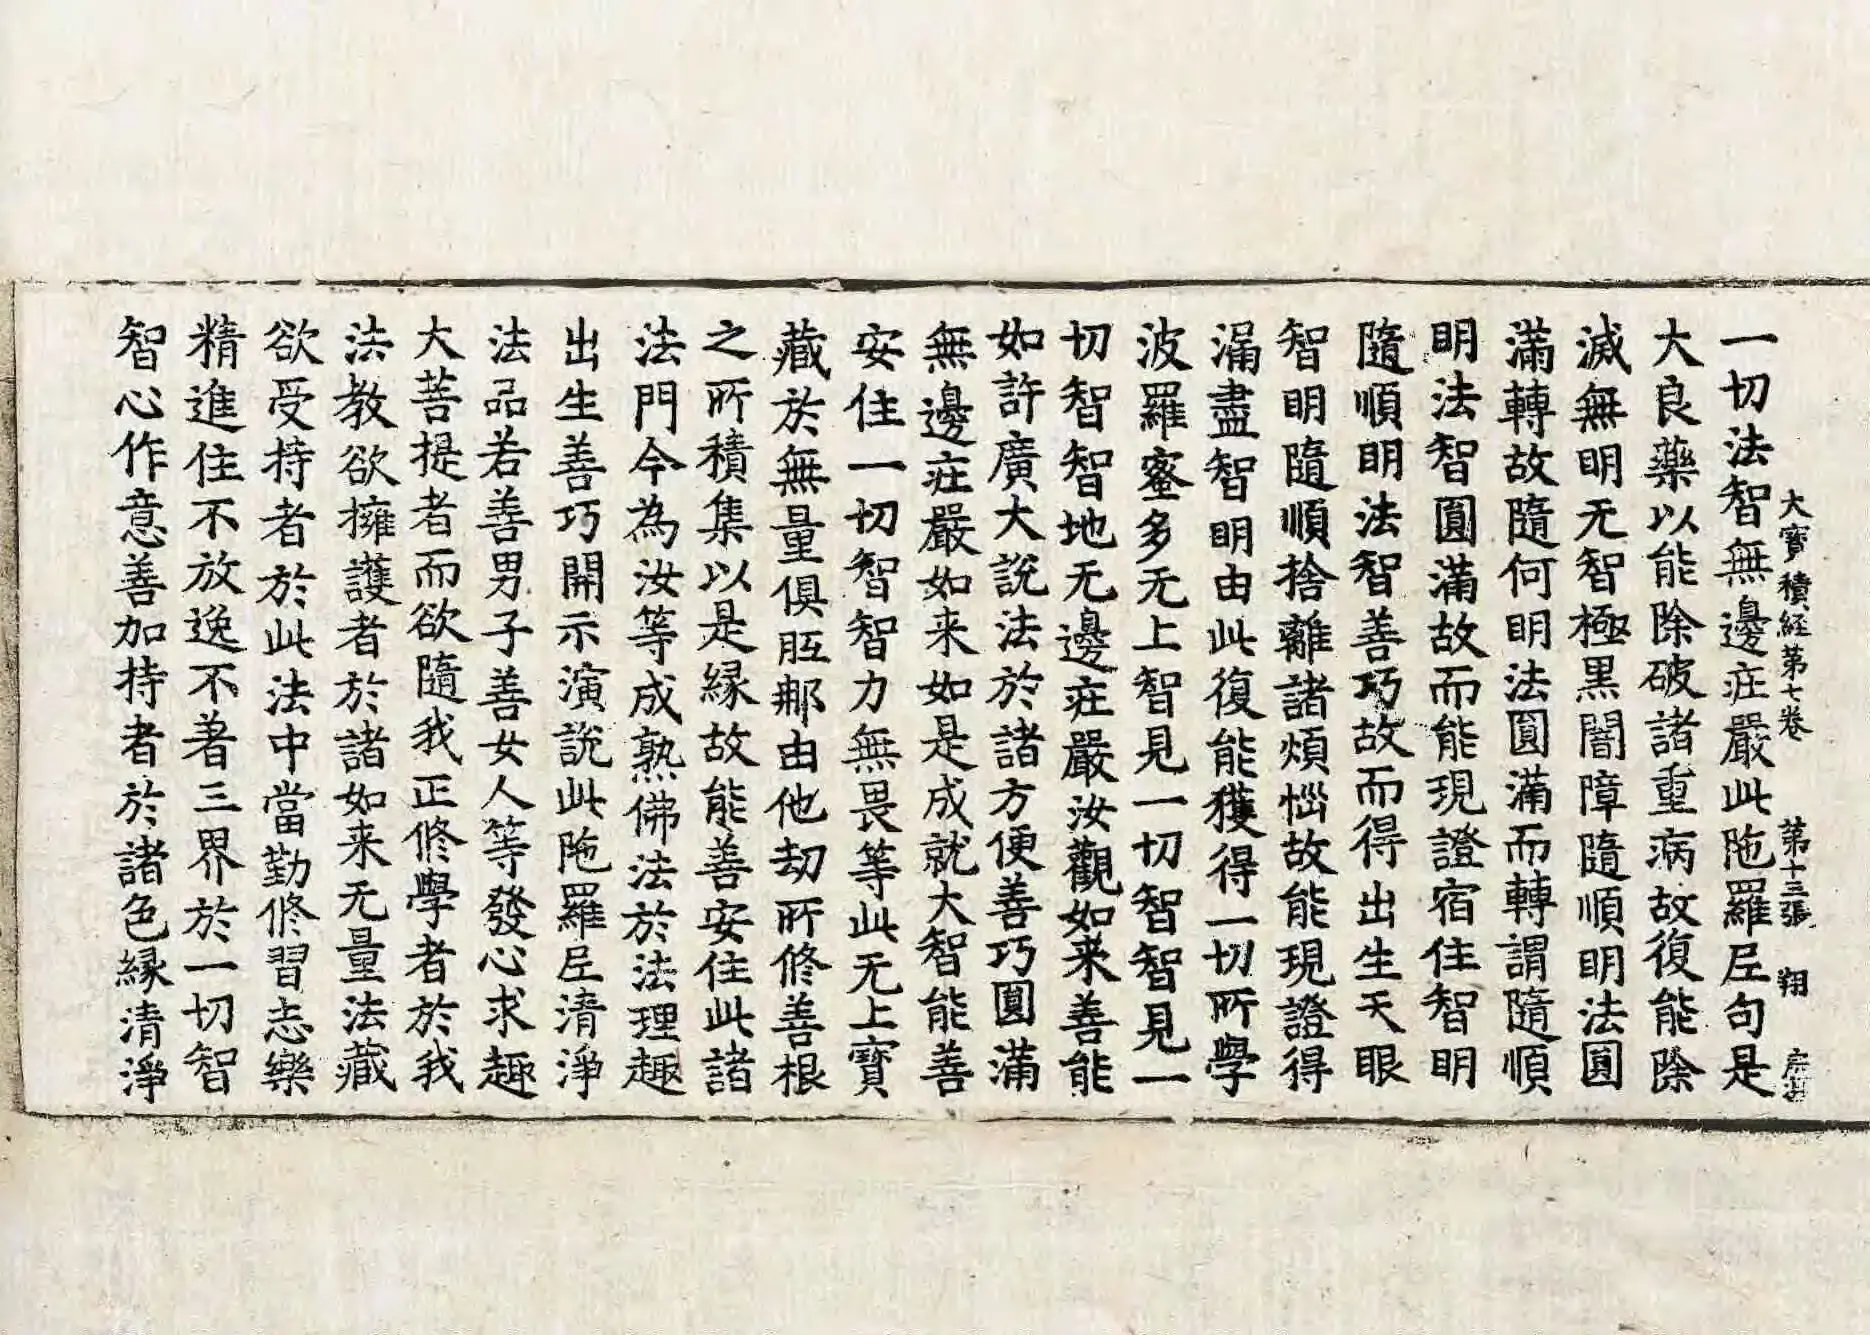 大寳積経第七卷 第十三張 翔
一切法智無邊疘嚴此陁羅𡰱句是
大良藥以能除破諸重病故復能除
滅無明无智極黑闇障隨順明法圓
滿轉故隨何明法圓滿而轉謂隨順
明法智圓滿故而能現證宿住智明
隨順明法智善巧故而得出生天眼
智明隨順捨離諸煩惱故能現證得
漏盡智明由此復能獲得一切所學
波羅蜜多无上智見一切智智見一
切智智地无邊疘嚴汝觀如来善能
如許廣大說法於諸方便善巧圓滿
無邊疘嚴如来如是成就大智能善
安住一切智智力無畏等此无上寶
藏於無量俱胝那由他劫所修善根
之所積集以是縁故能善安住此諸
法門今為汝等成熟佛法於法理趣
出生善巧開示演說此陁羅𡰱清淨
法品若善男子善女人等發心求趣
大菩提者而欲隨我正修學者於我
法教欲擁護者於諸如来无量法藏
欲受持者於此法中當勤修習志樂
精進住不放逸不著三界於一切智
智心作意善加持者於諸色縁清淨